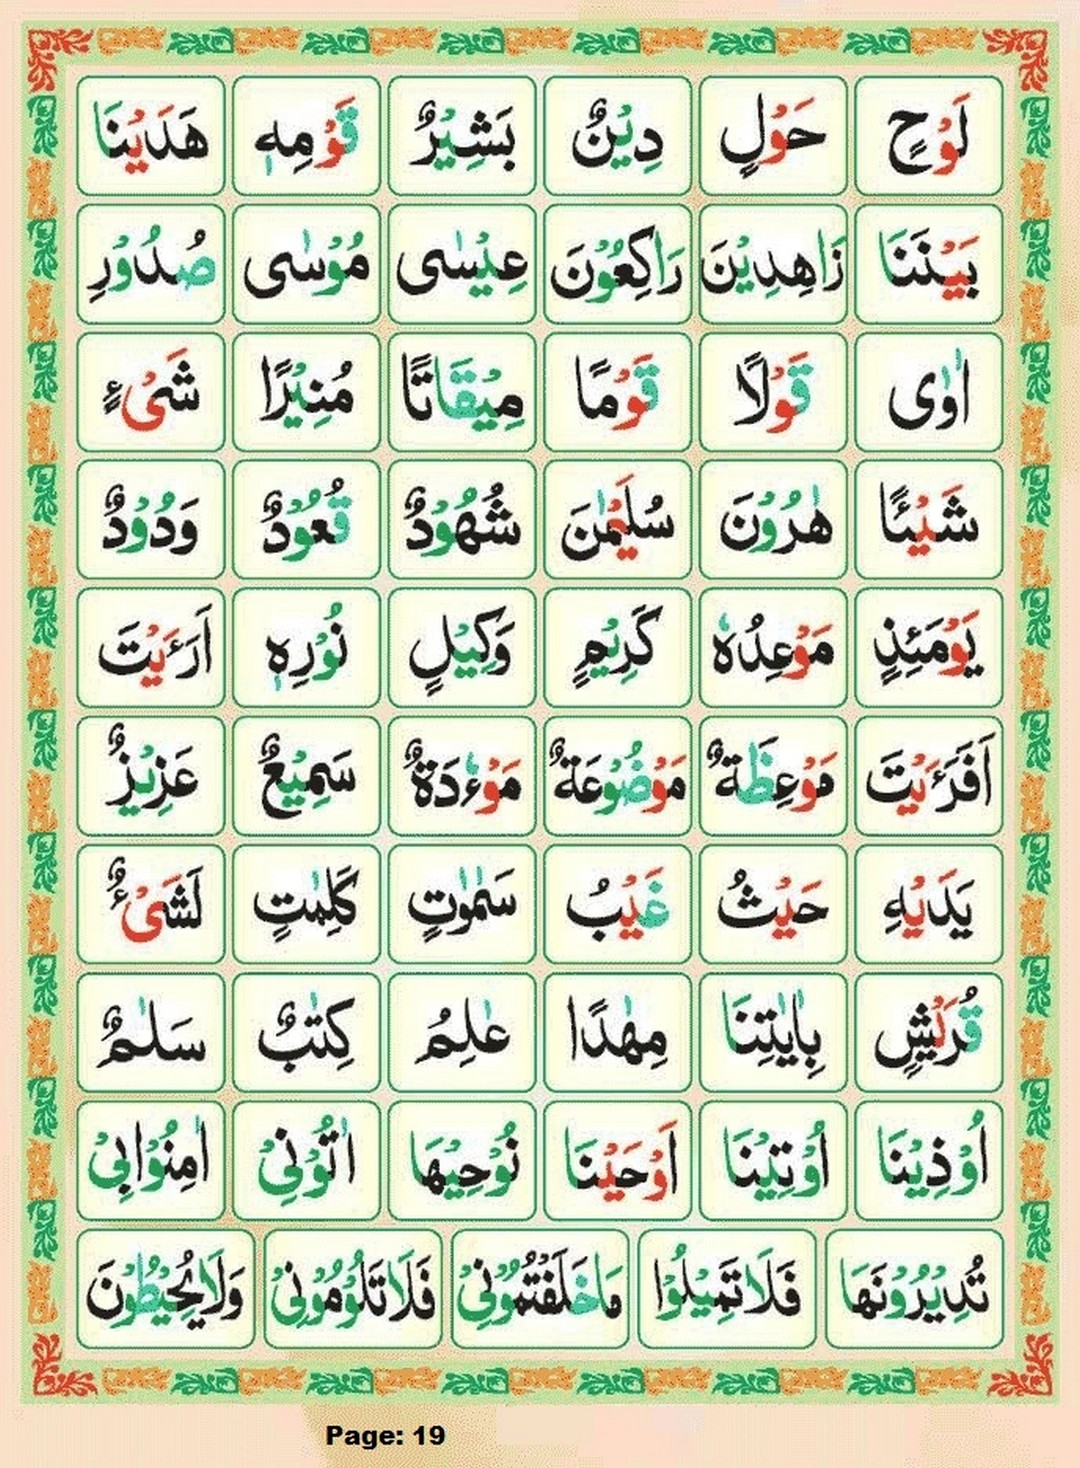 لَوْحٍ حَوْلٍ دِيْنٌ بَشِيْرٌ قَوْمِهٖ هَدَيْنَا
بَيْنَنَا زَاهِدِيْنَ رَاكِعُوْنَ عِيْسٰى مُوْسٰى صُدُوْرِ
اٰوٰى قَوْلًا قَوْمًا مِيْقَاتًا مُنِيْرًا شَىْءٍ
شَيْئًا هٰرُوْنَ سُلَيْمٰنَ شُهُوْدٌ قُعُوْدٌ وَدُوْدٌ
يَوْمَئِذٍ مَوْعِدُهٗ كَرِيْمٍ وَكِيْلٍ نُوْرِهٖ اَرَءَيْتَ
اَفَرَءَيْتَ مَوْعِظَةٌ مَوْضُوْعَةٌ مَوْءٗدَةٌ سَمِيْعٌ عَزِيْزٌ
يَدَيْهِ حَيْثُ غَيْبُ سَمٰوٰتٍ كَلِمٰتٍ لَشَىْءٌ
قُرَيْشٍ بِاٰيٰتِنَا مِهٰدًا عٰلِمُ كِتٰبٌ سَلٰمٌ
اُوْذِيْنَا اُوْتِيْنَا اَوْحَيْنَا نُوْحِيْهَا اٰتُوْنِىْ اٰمِنُوْابِىْ
تُدِيْرُوْنَهَا فَلَاتَمِيْلُوْا مَاخَلَفْتُمُوْنِىْ فَلَاتَلُوْمُوْنِىْ وَلَايُحِيْطُوْنَ
Page: 19